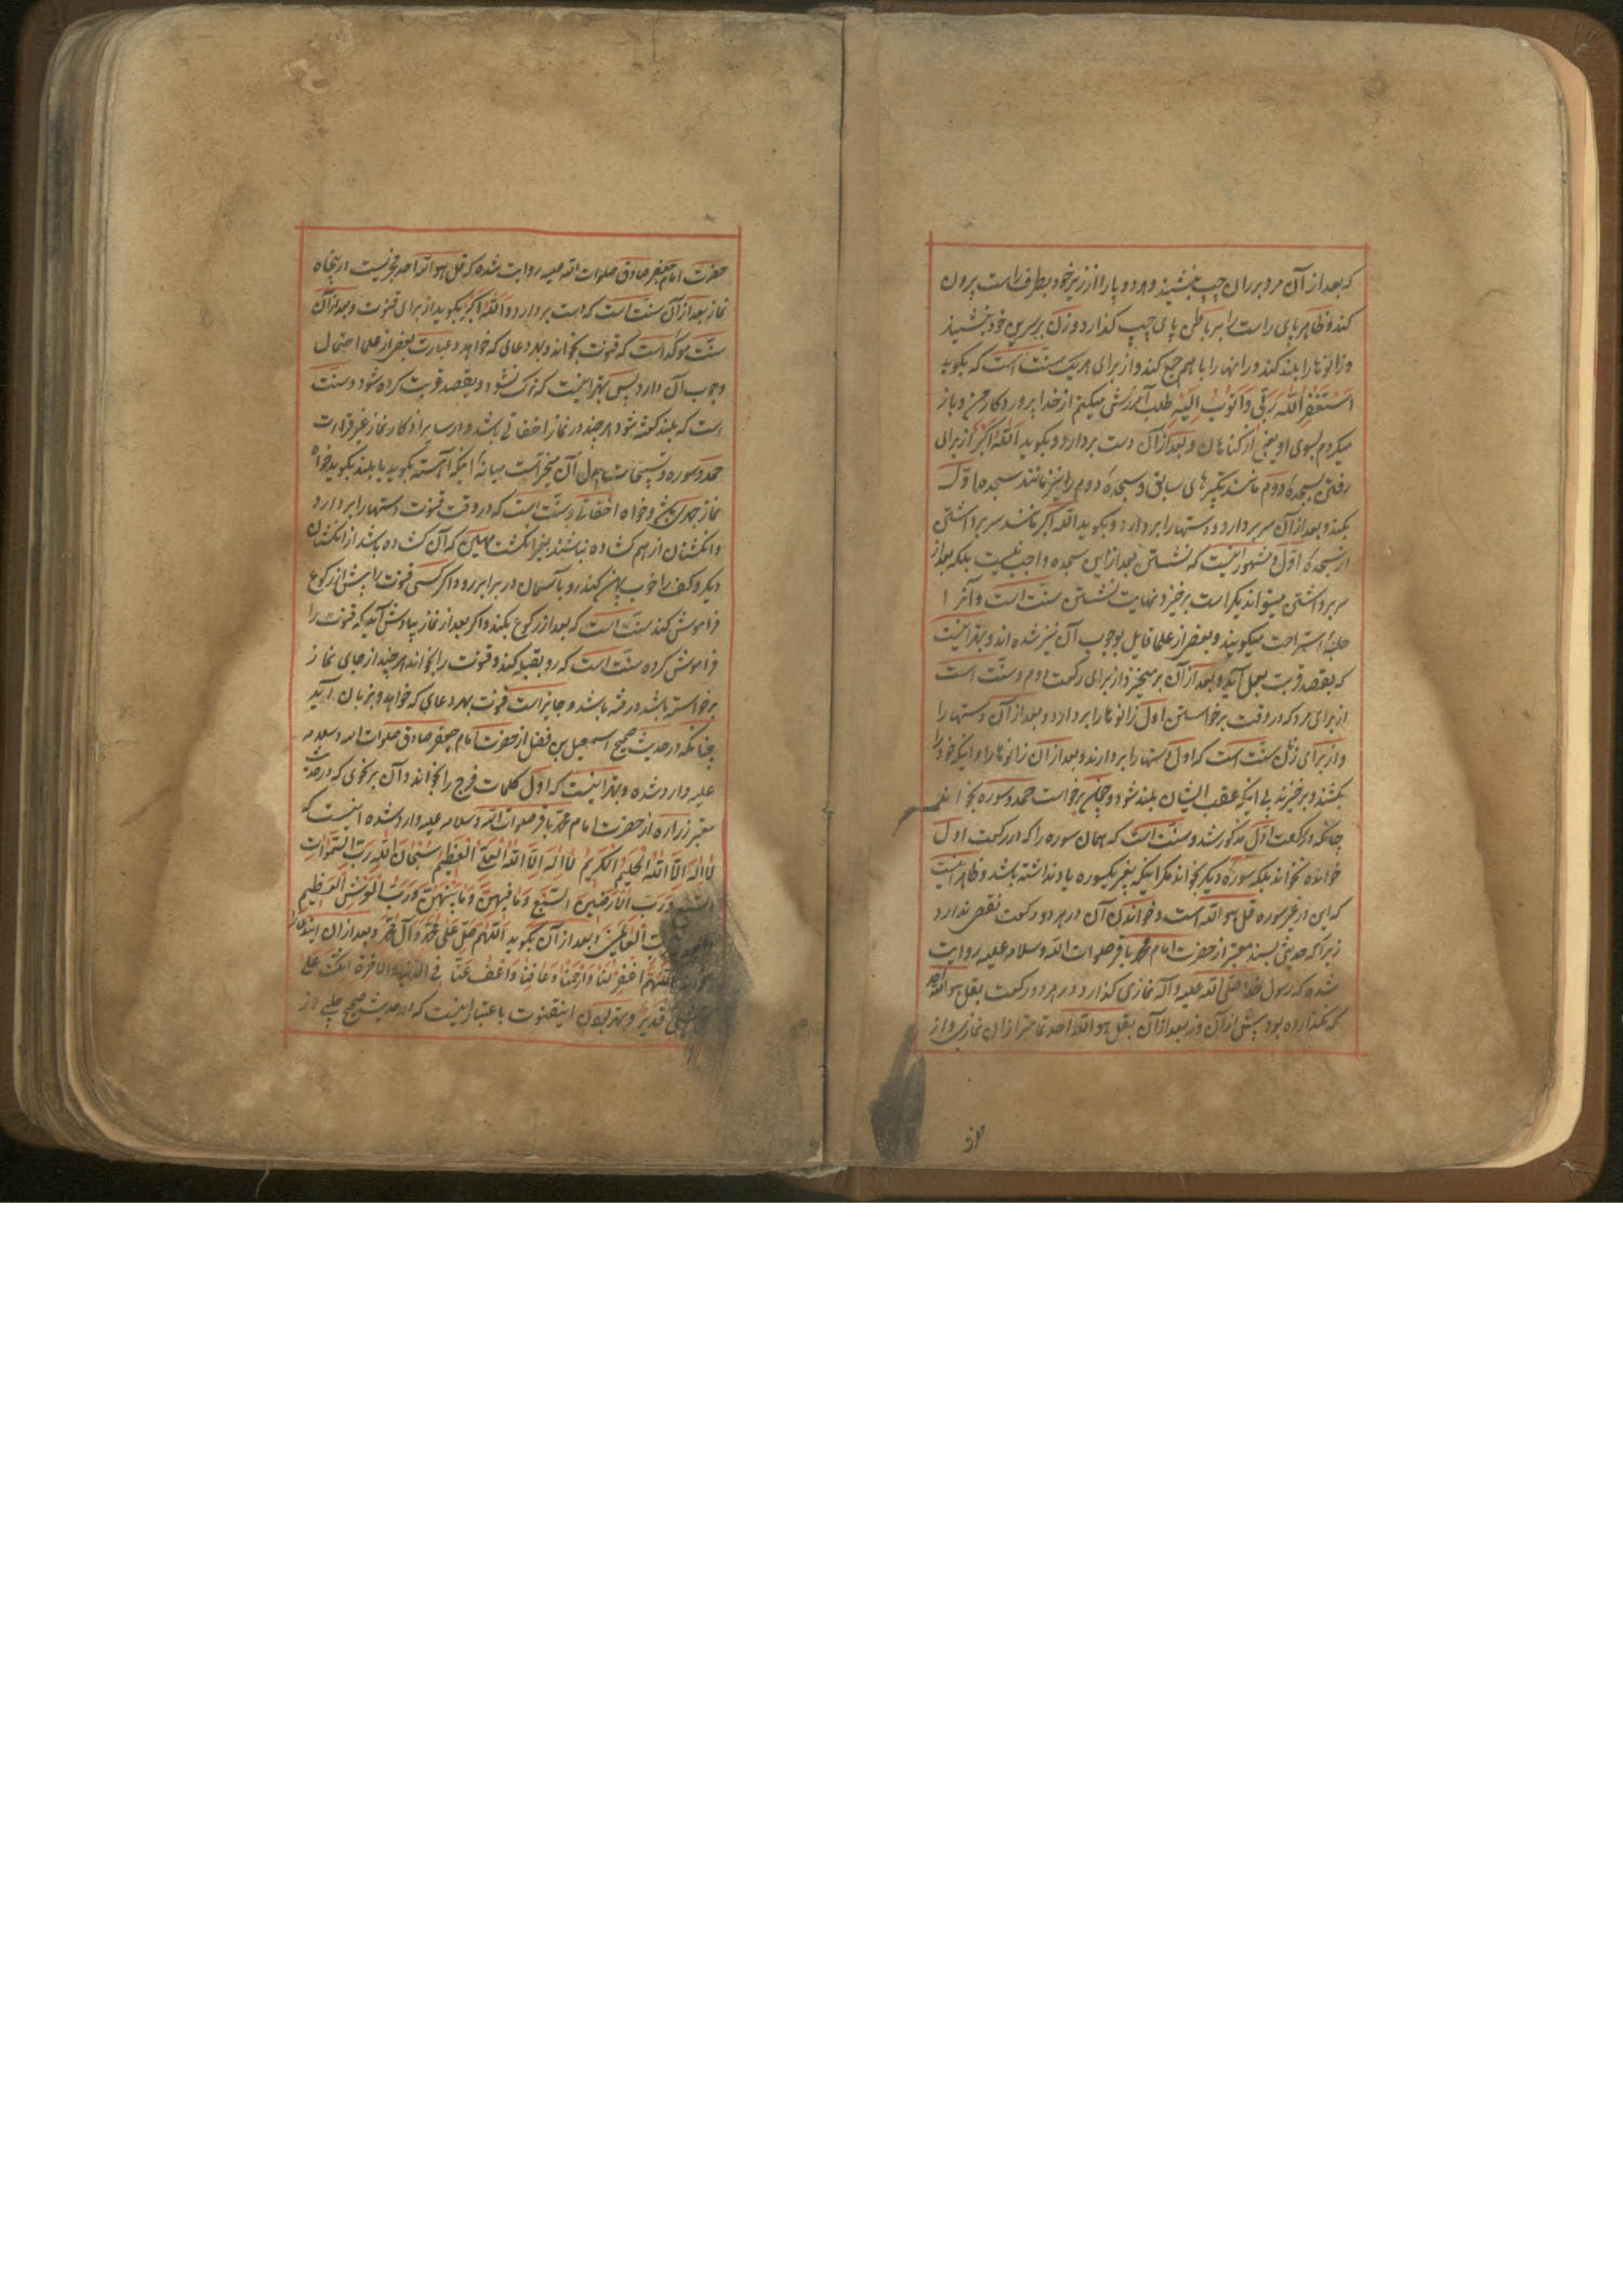 که بعد از آن مرد بر ران چپ بنشیند و هر دو پا را از زیر خود بطرف راست برون
کند و ظاهر پای راست را بر باطن پای چپ کذارد و زن بر سرین خود بنشیند
و زانوها را بلند کند و رانها را با هم جمع کند و از برای هر یک سنّت است که بکوید
اَستَغفِرُ اللهَ رَبّی وَاَتوُبُ اِلَیهِ طلب آمرزش میکنم از خدا پروردکار من و باز
میکردم بسوی او یعنی از کناهان و بعد از آن دست بردارد و بکوید اَللهُ اَکبَرُ از برای
رفتن بسجدهٔ دوم مانند تکبیرهای سابق و سجدهٔ دوم را نیز مانند سجدهٔ اوّل
بکند و بعد از آن سر بردارد و دستها را بردارد و بکوید الله اکبر مانند سر برداشتن
از سجدهٔ اوّل و مشهور اینست که نشستن بعد از این سجده واجب نیست بلکه بعد از
سر برداشتن میتواند یکراست برخیزد نهایت نشستن سنّت است و آنرا
جلسهٔ استراحت میکویند و بعضی از علما قایل بوجوب آن نیز شده اند و بهتر اینست
که بقصد قربت بعمل آید و بعد از آن بر میخیزد از برای رکعت دوم و سنّت است
از برای مرد که در وقت برخواستن اول زانوها را بردارد و بعد از آن دستها را
و از برای زن سنّت است که اول دستها را بردارند و بعد از آن زانوها را و اینکه خود را
بکشند و برخیزند بی اینکه عقب ایشان بلند شود و چون برخواست حمد و سوره بخواند
چنانکه در رکعت اوّل مذکور شد و سنّت است که همان سوره را که در رکعت اول
خوانده نخواند بلکه سورهٔ دیکر بخواند مکر اینکه بغیر یکسوره یاد نداشته باشد و ظاهر اینست
که این در غیر سوره قل هو الله است و خواندن آن در هر دو رکعت نقصی ندارد
زیرا که حدیثی بسند معتبر از حضرت امام محمّد باقر صلوات الله وسلامه علیه روایت
شده که رسول خدا صلّی الله علیه وآله نمازی کذارد و در هر دو رکعت بقل هو الله احد
که نکذارده بود پیش از آن و نه بعد از آن بقل هو الله احد تمامتر از آن نمازی و از
و از
حضرت امام جعفر صادق صلوات الله علیه روایت شده که قل هو الله احد مجزیست از پنجاه
نماز بعد از آن سنّت است که دست بردارد و اَللهُ اَکبَرُ بکوید از برای قنوت و بعد از آن
سنّت مؤکد است که قنوت بخواند و بهر دعای که خواهد و عبارت بعضی از علما احتمال
وجوب آن دارد پس بهتر اینست که ترک نشود و بقصد قربت کرده شود و سنّت
است که بلند کفته شود هر چند در نماز اخفاتی باشد و در سایر اذکار نماز غیر قرائت
حمد و سوره و تسبیحات بدل آن مخیّر است میانهٔ اینکه آهسته بکوید یا بلند بکوید خواه
نماز جهری باشد و خواه اخفاتی و سنّت است که در وقت قنوت دستها را بردارد
و انکشتان از هم کشاده نباشند بغیر انکشت مهین که آن کشاده باشد از انکشتان
دیکر و کف را خوب پهن کند رو بآسمان در برابر رو و اکر کسی قنوت را پیش از رکوع
فراموش کند سنّت است که بعد از رکوع بکند و اکر بعد از نماز بیادش آید که قنوت را
فراموش کرده سنّت است که رو بقبله کند و قنوت را بخواند هر چند از جای نماز
برخواسته باشد و رفته باشد و جایز است قنوت بهر دعای که خواهد و بزبان آید
چنانکه در حدیث صحیح اسمعیل بن فضل از حضرت امام جعفر صادق صلوات الله وسلامه
علیه وارد شده و بهتر اینست که اول کلمات فرج را بخواند و آن بر نحوی که در حدیث
معتبر زراره از حضرت امام محمّد باقر صلوات الله وسلامه علیه وارد شده اینست که
لا اِلهَ اِلّا اللهُ الحَلیمُ الکَریمُ لا اِلهَ اِلّا اللهُ العَلِیُّ العَظیمُ سُبحانَ اللهِ رَبِّ السَّمواتِ
السَّبعِ وَرَبِّ الاَرَضینَ السَّبعِ وَما فیهِنَّ وَما بَینَهُنَّ وَرَبِّ العَرشِ العَظیمِ
رَبِّ العالَمینَ و بعد از آن بکوید اَللّهُمَّ صَلِّ عَلی مُحَمَّدٍ وَآلِ مُحَمَّدٍ و بعد از آن این دعا را
بخواند اَللّهُمَّ اغفِر لَنا وَارحَمنا وَعافِنا وَاعفُ عَنّا فِی الدُّنیا وَالاخِرَةِ اِنَّکَ عَلی
کُلِّ شَیءٍ قَدیرٌ و بهتر بودن این قنوت باعتبار اینست که در حدیث صحیح حلبی از